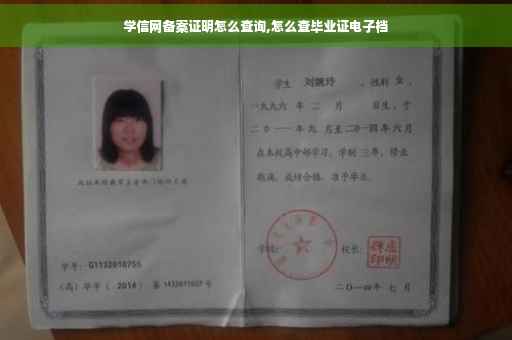 学信网备案证明怎么查询,怎么查毕业证电子档
学生 刘婉玲 ,性别 女 ,
一九九六 年 二 月 日生,于
二〇一一年九 月至二〇一四年六月
在本校高中部学习,学制 三年,修业
期满,成绩合格,准予毕业。
学号: G1132010755
学校: 校长:
(高)毕字( 2014 )第 1432011027 号
二〇一四年 七 月